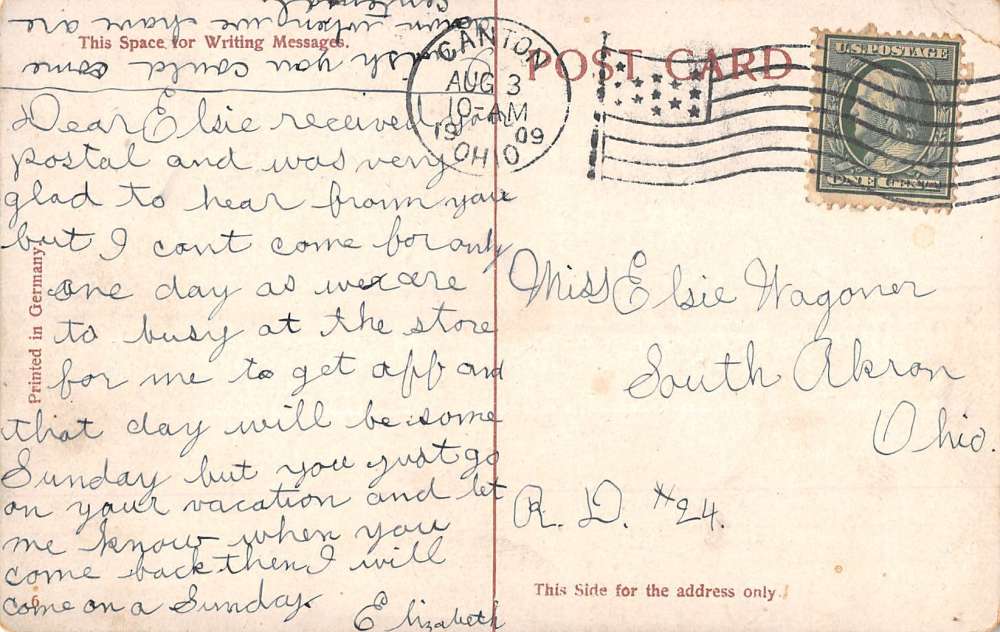 This Space for Writing Messages.
POST CARD
CANTON
AUG 3
10-AM
1909
OHIO
U.S. POSTAGE
ONE CENT
Dear Elsie received your
postal and was very
glad to hear from you
but I cant come for only
one day as we are
to busy at the store
for me to get off and
that day will be some
Sunday but you just go
on your vacation and let
me know when you
come back then I will
come on a Sunday.
Elizabeth
I wish you could come
down when we have are
centennial
Miss Elsie Wagoner
South Akron
Ohio.
R. D. #24.
Printed in Germany.
6
This Side for the address only.